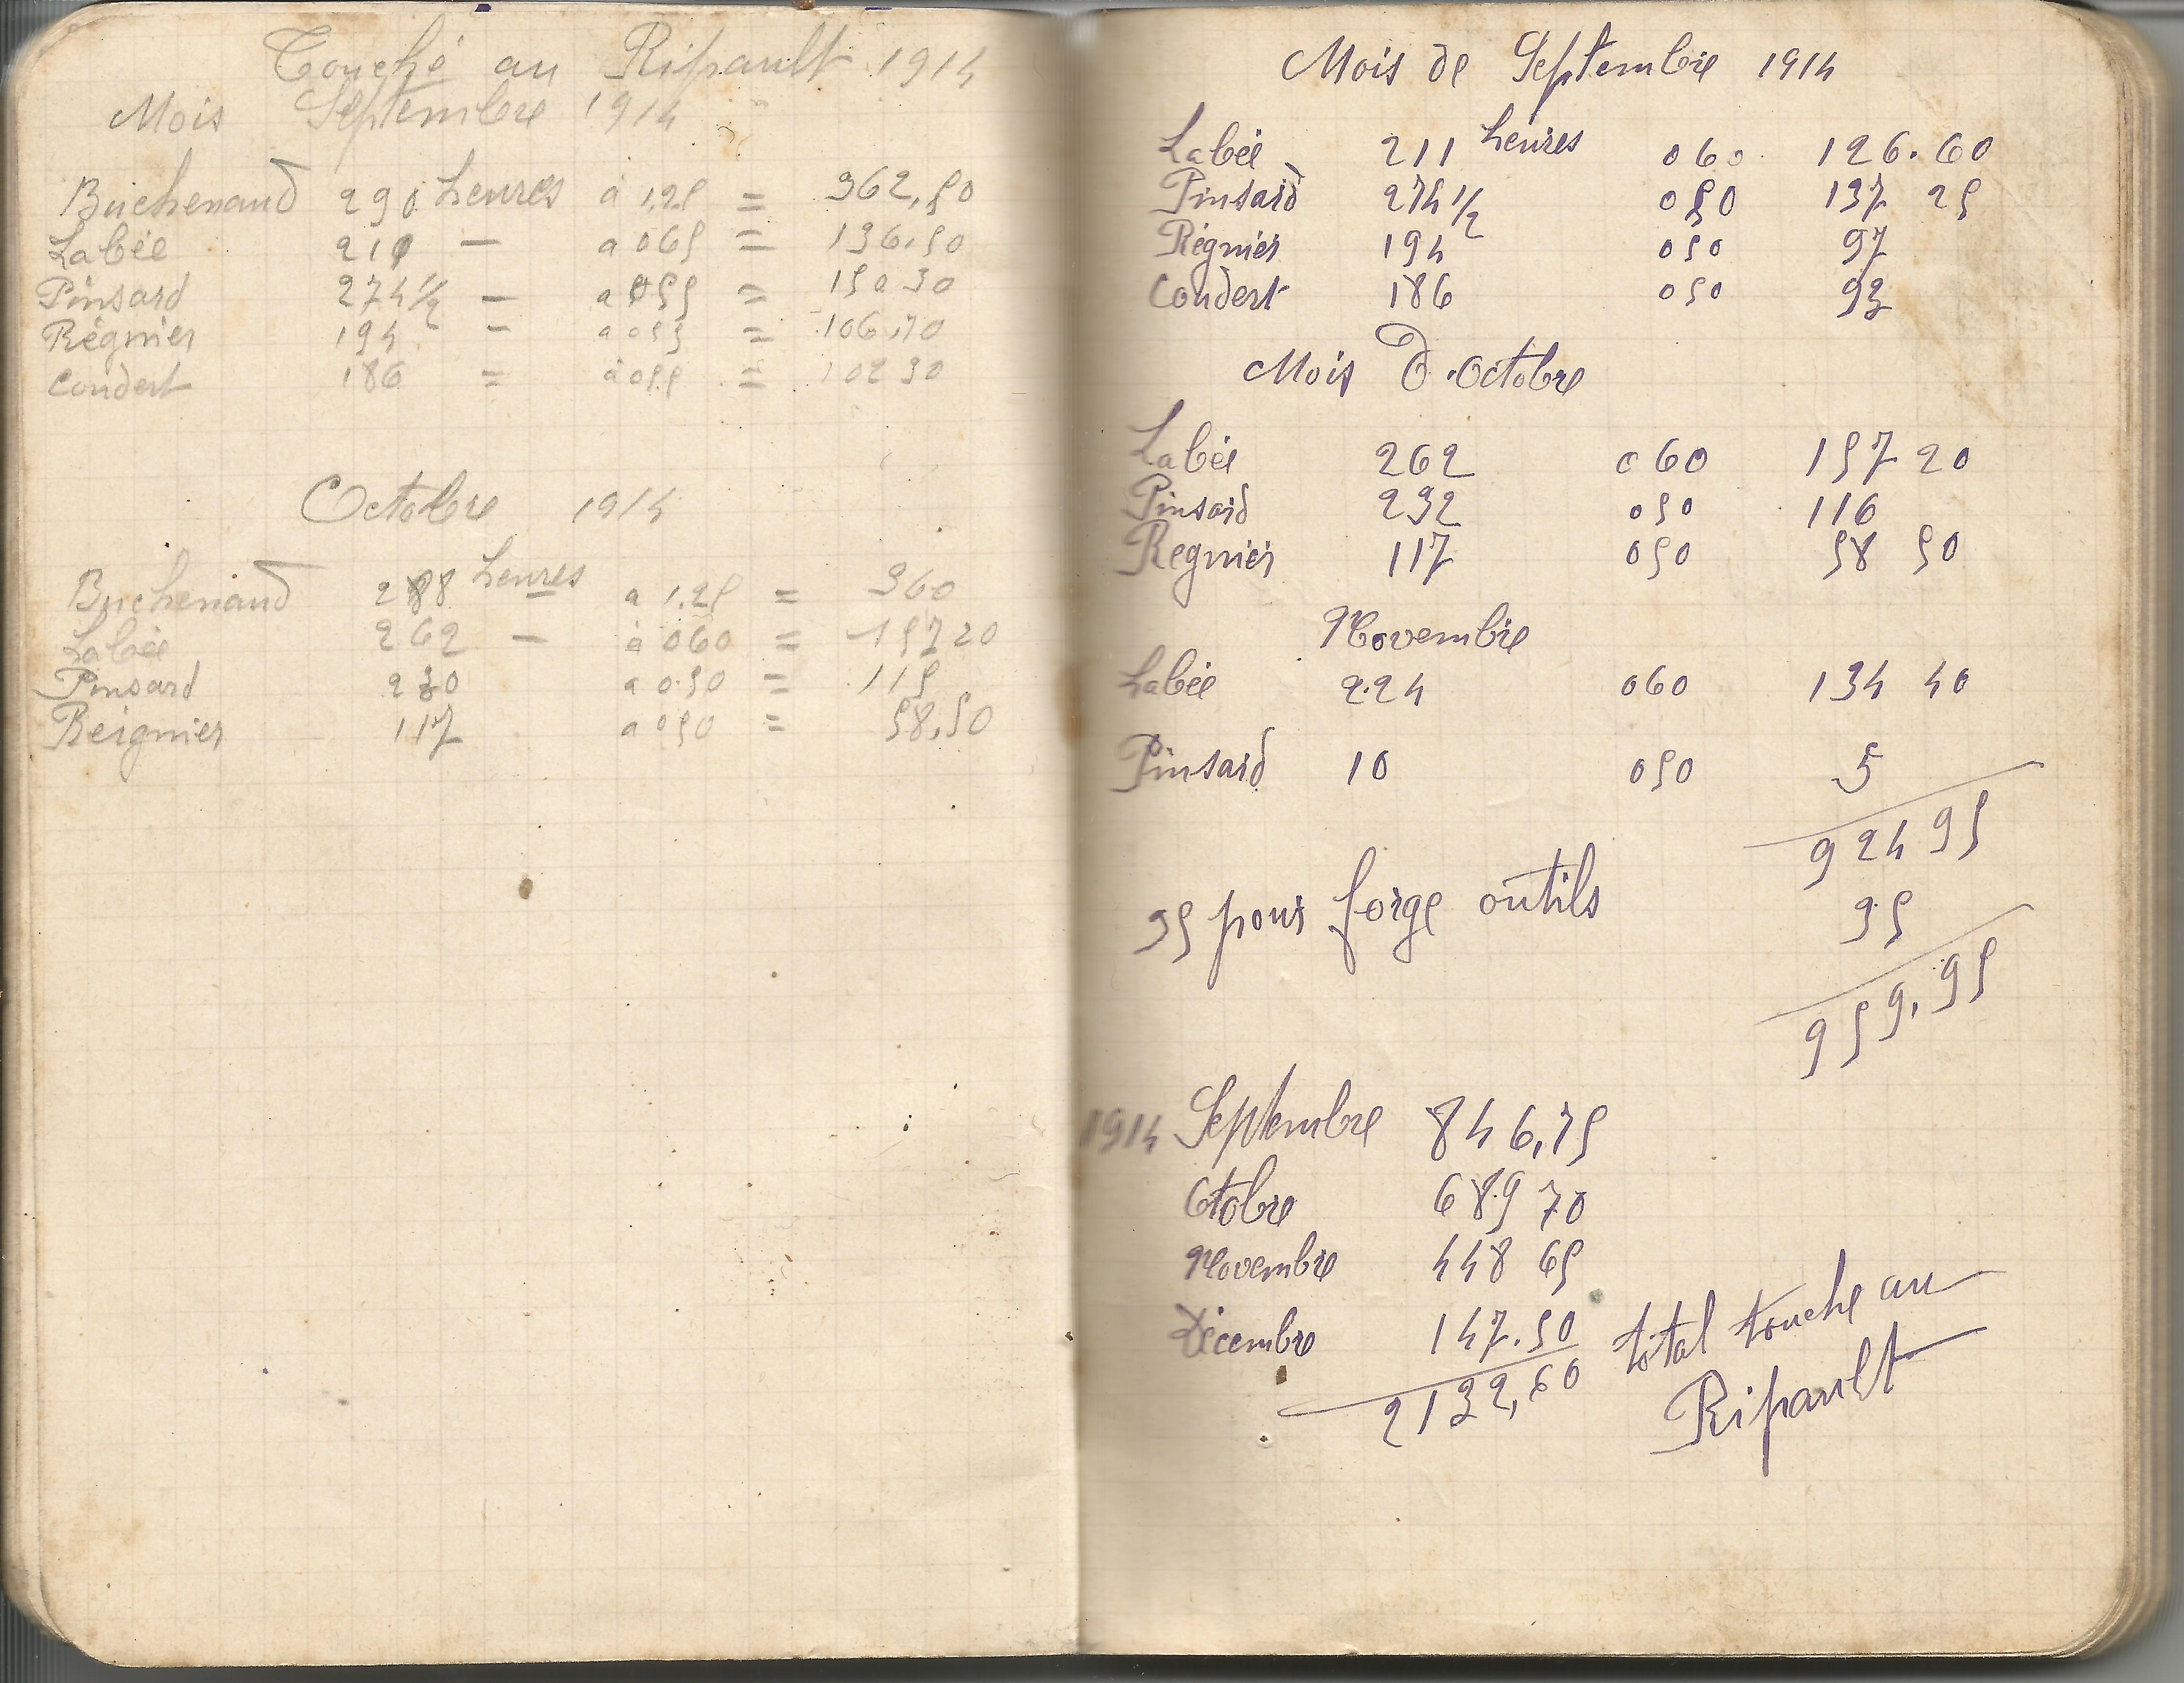 Touché au Ripault 1914
Mois Septembre 1914
Buchenaud 290 heures à 1.25 = 362,50
Labée 210 — a 065 = 136.50
Pinsard 274 1/2 — a 055 = 150 30
Régnier 194 — a 055 = 106,70
Condert 186 = à 055 = 102 30
Octobre 1914
Buchenaud 288 heures a 1.25 = 360
Labée 262 — à 060 = 157 20
Pinsard 230 a 0.50 = 115
Reignier 117 a 050 = 58,50
Mois de Septembre 1914
Labée 211 heures 060 126.60
Pinsard 274 1/2 050 137 25
Régnier 194 050 97
Condert 186 050 93
Mois d.octobre
Labée 262 060 157 20
Pinsard 232 050 116
Regnier 117 050 58 50
Novembre
Labée 224 060 134 40
Pinsard 10 050 5
924 95
35 pour forge outils 35
959,95
1914 Septembre 846,75
Octobre 689 70
Novembre 448 65
Décembre 147.50 total touche au
2132,60 Ripault